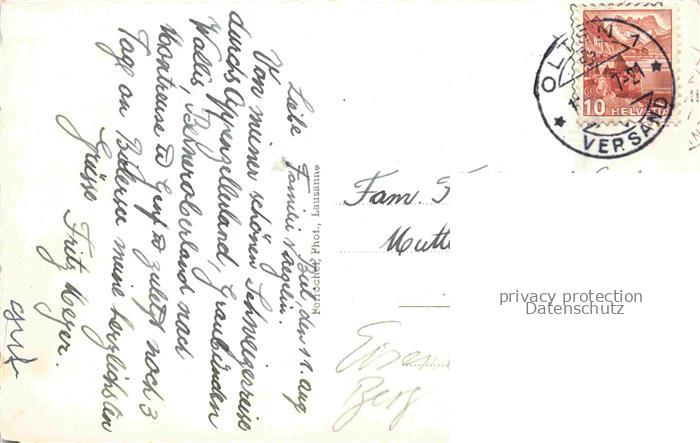 Biel, den 11. Aug
Liebe Familie Naegelin.
Von meiner schönen Schweizerreise
durchs Appenzellerland, Graubünden
Wallis, Berneroberland nach
Montreuse & Genf & zuletzt noch 3
Tage am Bielersee meine herzlichsten
Grüsse Fritz Meyer.
Perrochet, Phot., Lausanne
OLTEN 1
7-21
VERSAND
10 HELVETIA
Fam. F
Mutte
privacy protection
Datenschutz
Berg